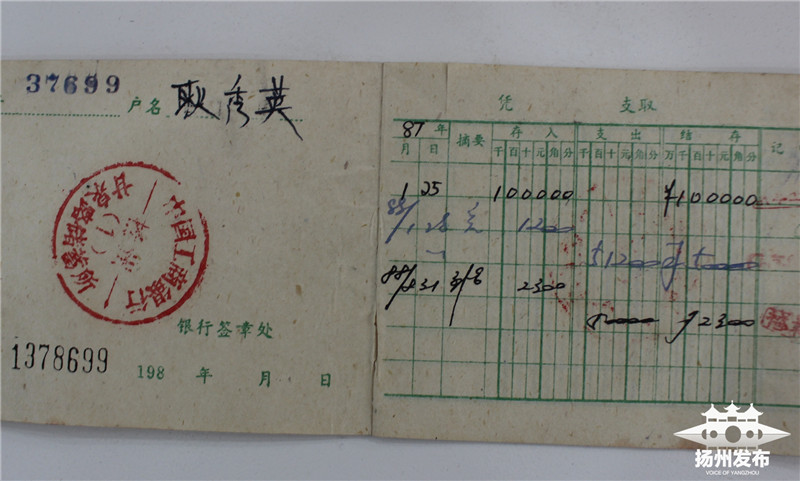 37699
户名 耿秀英
中国工商银行
甘泉路储蓄所
(1)
银行签章处
1378699 198 年 月 日
凭 支取
87年 摘要 存入 支出 结存 记
月 日 千百十元角分 千百十元角分 万千百十元角分
1 25 100000 ¥100000
88/1 28 1200
88/8 31 2300
¥2300
扬州发布
VOICE OF YANGZHOU